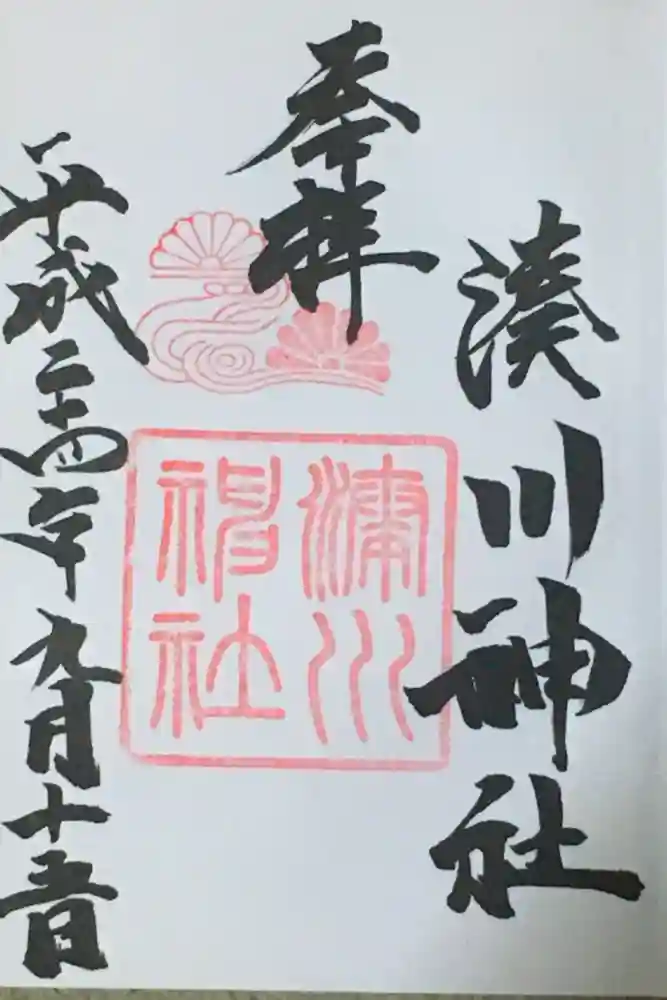 湊川神社
奉拝
湊川神社
平成二十四年九月十五日